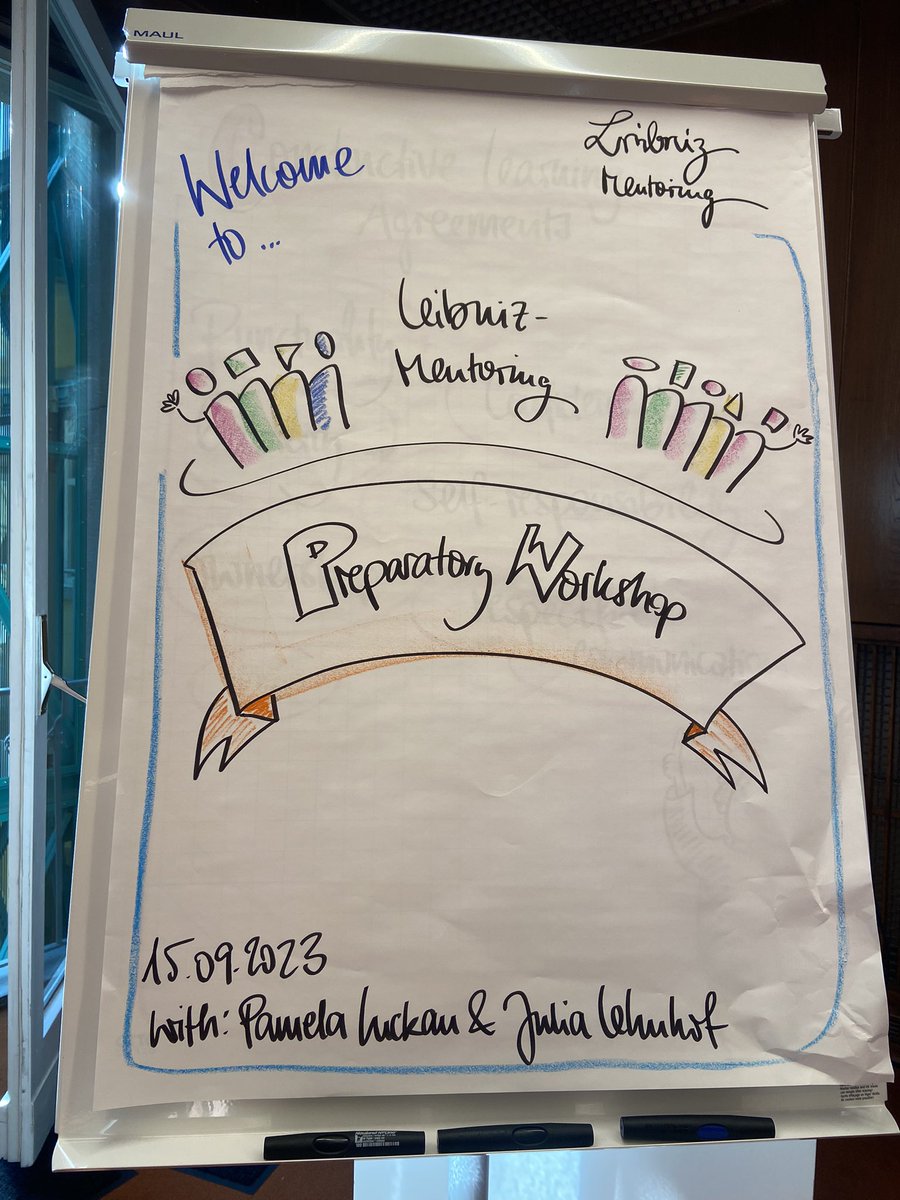 MAUL
Welcome
to ...
Leibniz
Mentoring
Leibniz-
Mentoring
Preparatory Workshop
15.09.2023
with: Pamela Luckau & Julia Lehnhof